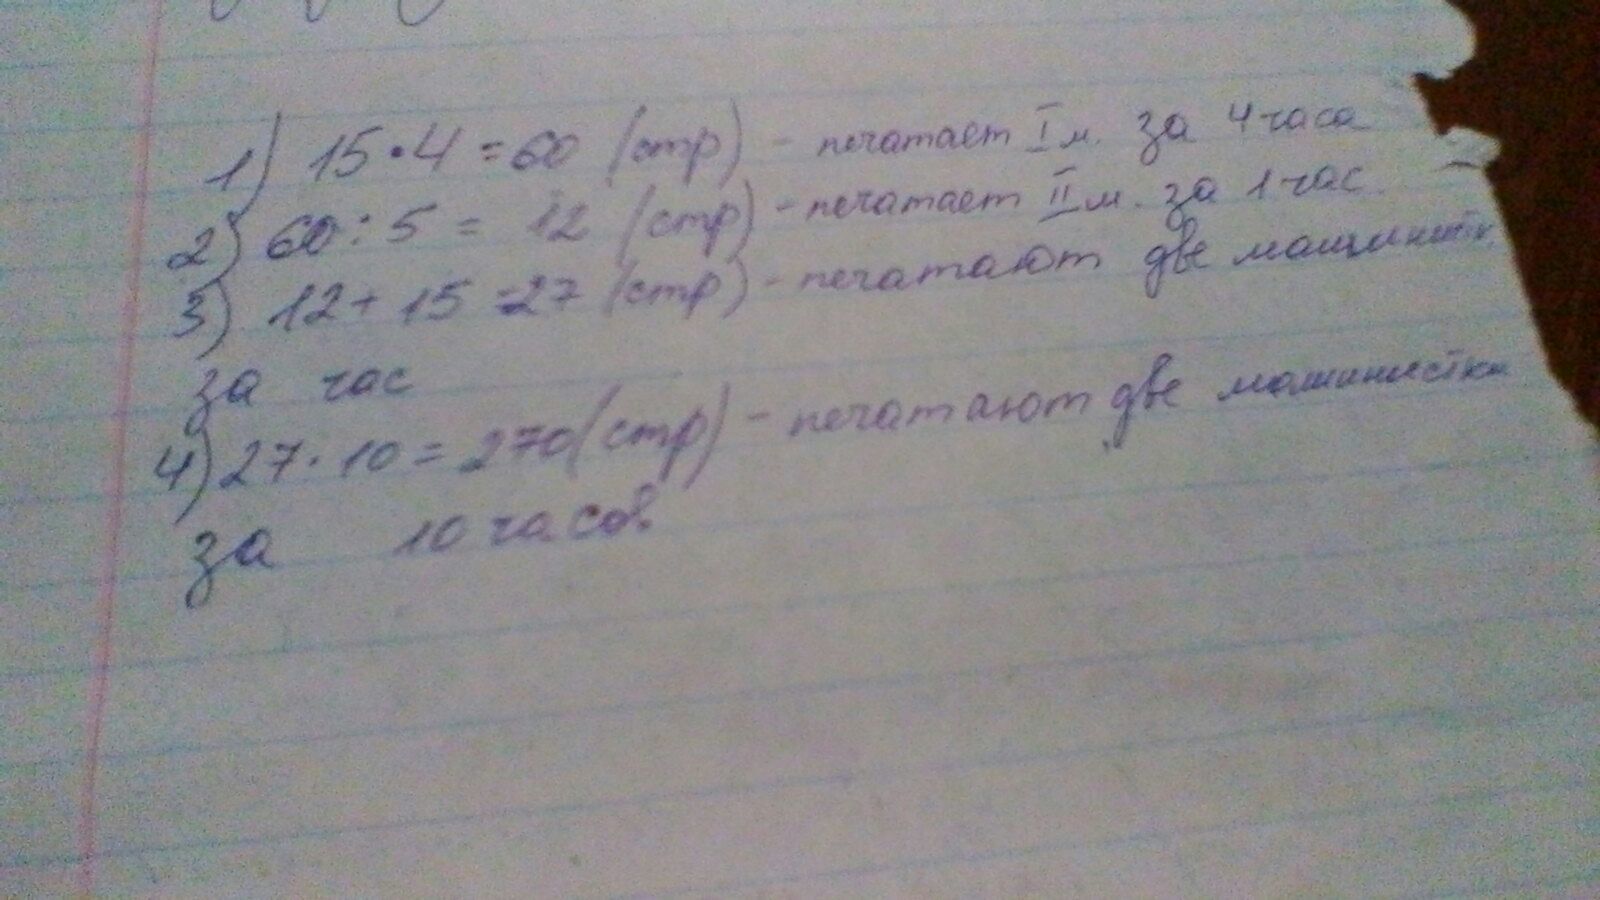 1) 15·4=60 (стр) - печатает I м. за 4 часа
2) 60:5= 12 (стр) - печатает II м. за 1 час
3) 12+15=27 (стр) - печатают две машинистк
за час
4) 27·10=270(стр) - печатают две машинистки
за 10 часов